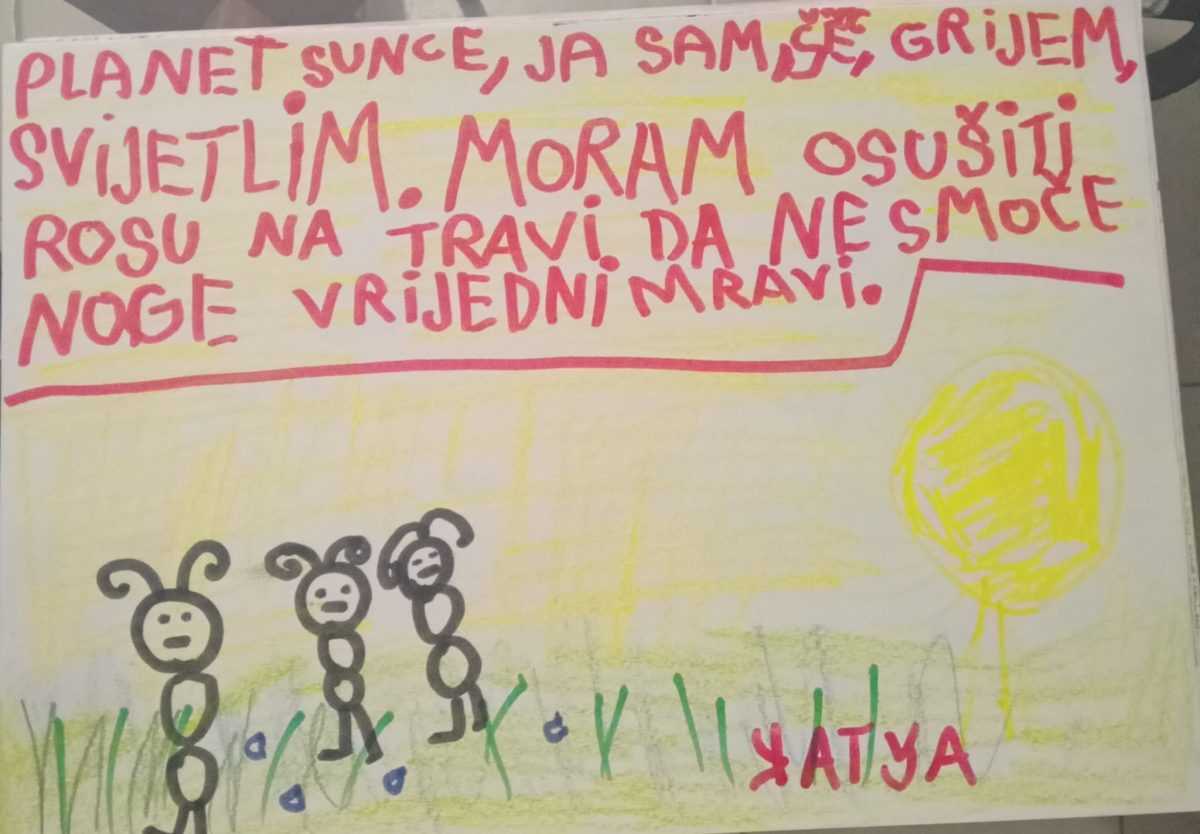 PLANET SUNCE, JA SAM, GRIJEM,
SVIJETLIM. MORAM OSUŠITI
ROSU NA TRAVI DA NE SMOČE
NOGE VRIJEDNI MRAVI.
KATYA